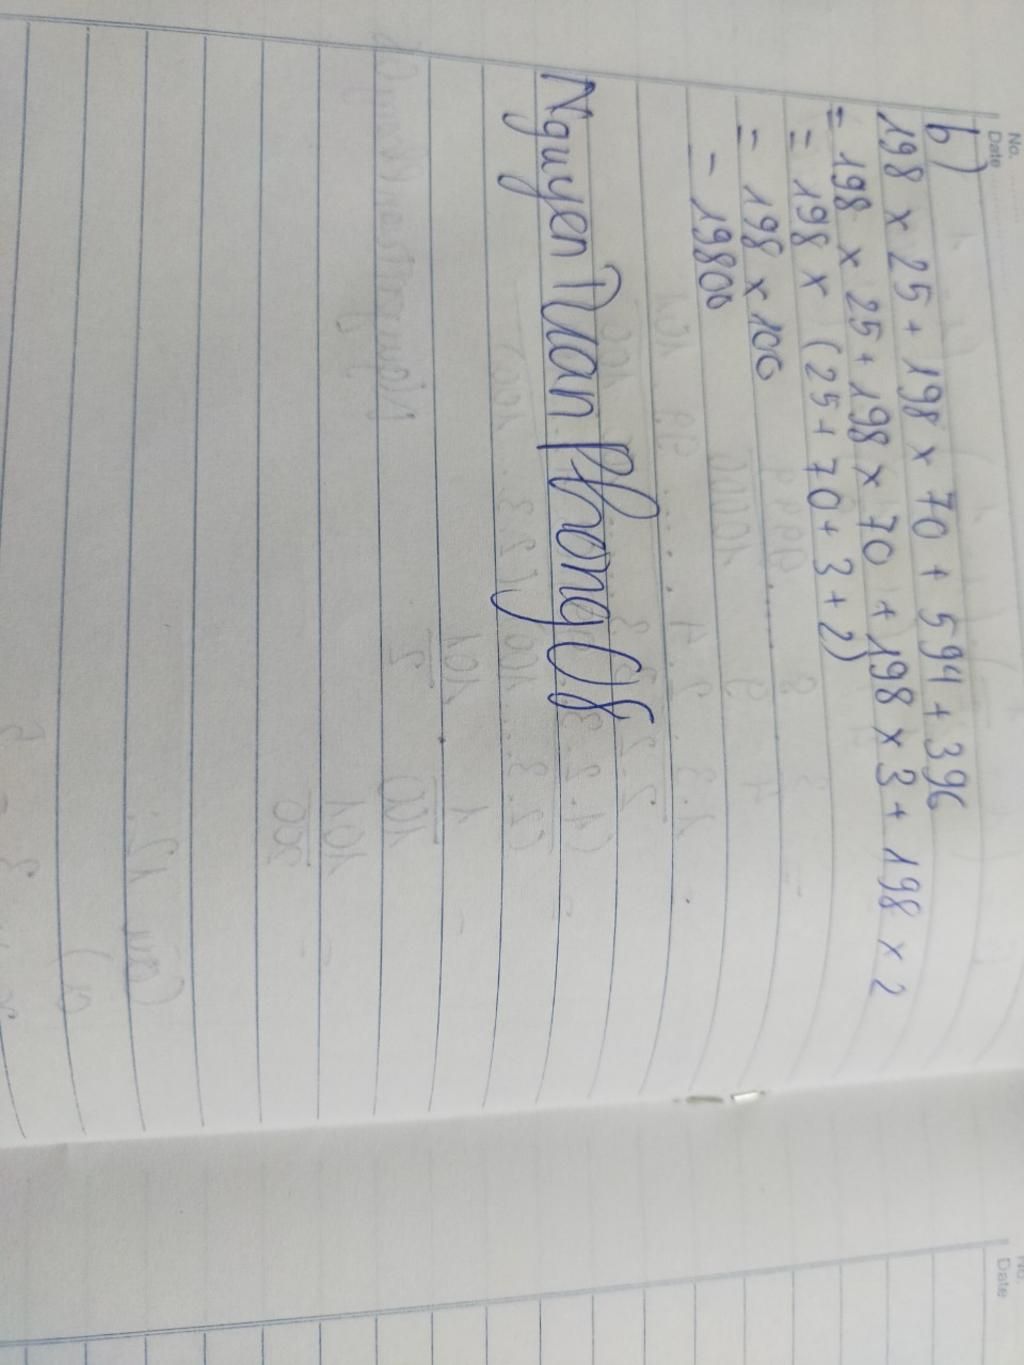 No.
Date
b)
198 x 25 + 198 x 70 + 594 + 396
= 198 x 25 + 198 x 70 + 198 x 3 + 198 x 2
= 198 x (25 + 70 + 3 + 2)
= 198 x 100
- 19800
Nguyen Tuan Phong 08
No.
Date